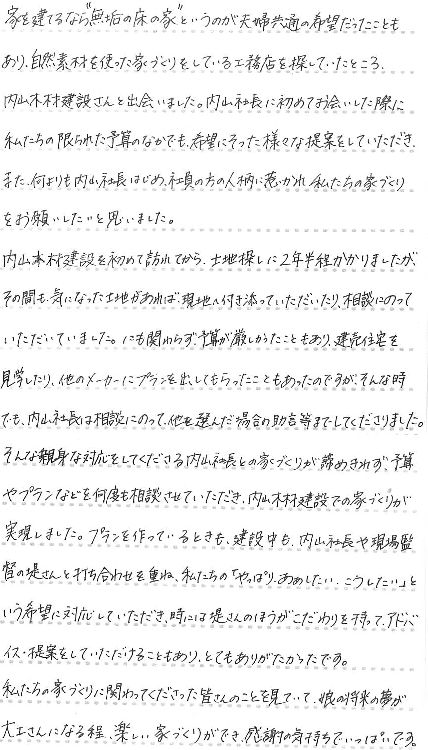 家を建てるなら"無垢の床の家"というのが夫婦共通の希望だったことも
あり、自然素材を使った家づくりをしている工務店を探していたところ、
内山木材建設さんと出会いました。内山社長に初めてお会いした際に
私たちの限られた予算のなかでも、希望にそった様々な提案をしていただき、
また、何よりも内山社長はじめ、社員の方の人柄に惹かれ、私たちの家づくり
をお願いしたいと思いました。
内山木材建設を初めて訪れてから、土地探しに2年半程かかりましたが、
その間も、気になった土地があれば、現地へ付き添っていただいたり、相談にのって
いただいていました。にも関わらず、予算が厳しかったこともあり、建売住宅を
見学したり、他のメーカーにプランを出してもらったこともあったのですが、そんな時
でも、内山社長は相談にのって、他を選んだ場合の助言等までしてくださりました。
そんな親身な対応をしてくださる内山社長との家づくりが諦めきれず、予算
やプランなどを何度も相談させていただき、内山木材建設での家づくりが
実現しました。プランを作っているときも、建設中も、内山社長や現場監
督の堤さんと打ち合わせを重ね、私たちの「やっぱり、ああしたい、こうしたい」と
いう希望に対応していただき、時には堤さんのほうがこだわりを持って、アドバ
イス・提案をしていただけることもあり、とてもありがたかったです。
私たちの家づくりに関わってくださった皆さんのことを見ていて、娘の将来の夢が
大工さんになる程、楽しい家づくりができ、感謝の気持ちでいっぱいです。